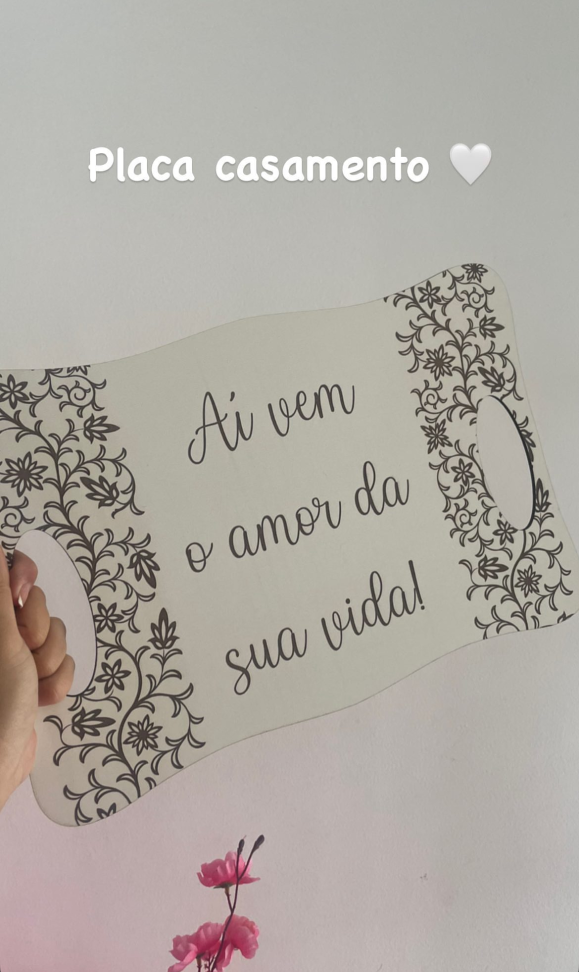 Placa casamento 🤍
Aí vem
o amor da
sua vida!